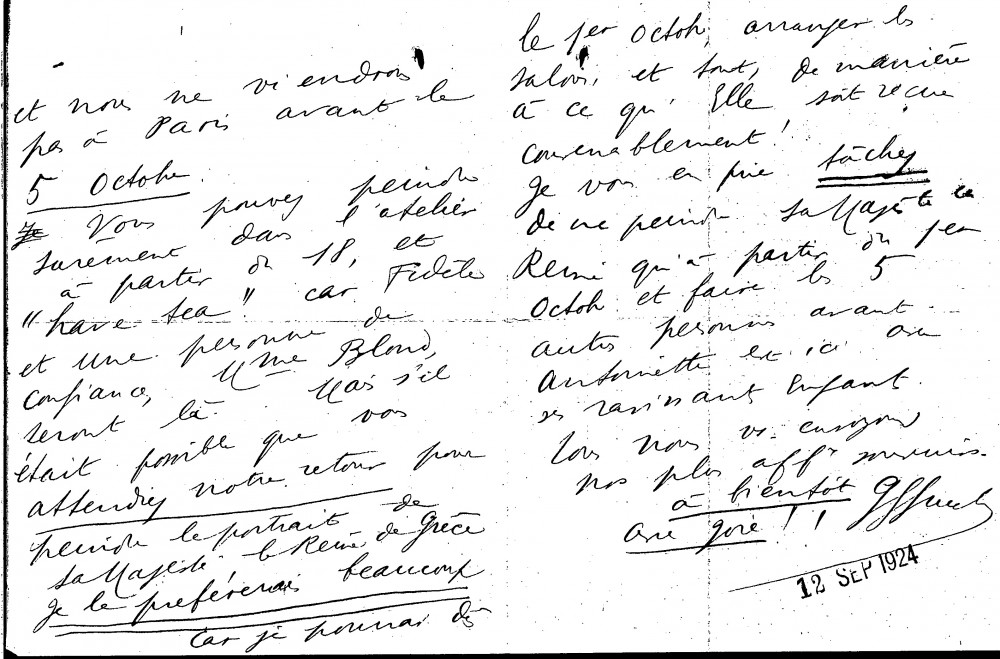 et nous ne viendrons
pas à Paris avant le
5 Octobre.
Vous pouvez peindre
surement dans l'atelier
à partir du 18, et
"have tea" car Fidèle
et une personne de
confiance, Mme Blond,
seront là. Mais s'il
était possible que vous
attendiez notre retour pour
peindre le portrait de
Sa Majesté la Reine de Grèce
je le préférerais beaucoup
car je pourrai dès
le 1er Octobre, arranger les
salons, et tout, de manière
à ce qu'Elle soit reçue
convenablement!
Je vous en prie tâchez
de ne peindre Sa Majesté la
Reine qu'à partir du 1er
Octobre et faire les 5
autres personnes avant.
Antoinette est ici avec
ses ravissant Enfant.
Tous nous vs. envoyons
nos plus affts souvenirs.
à bientôt
12 SEP 1924